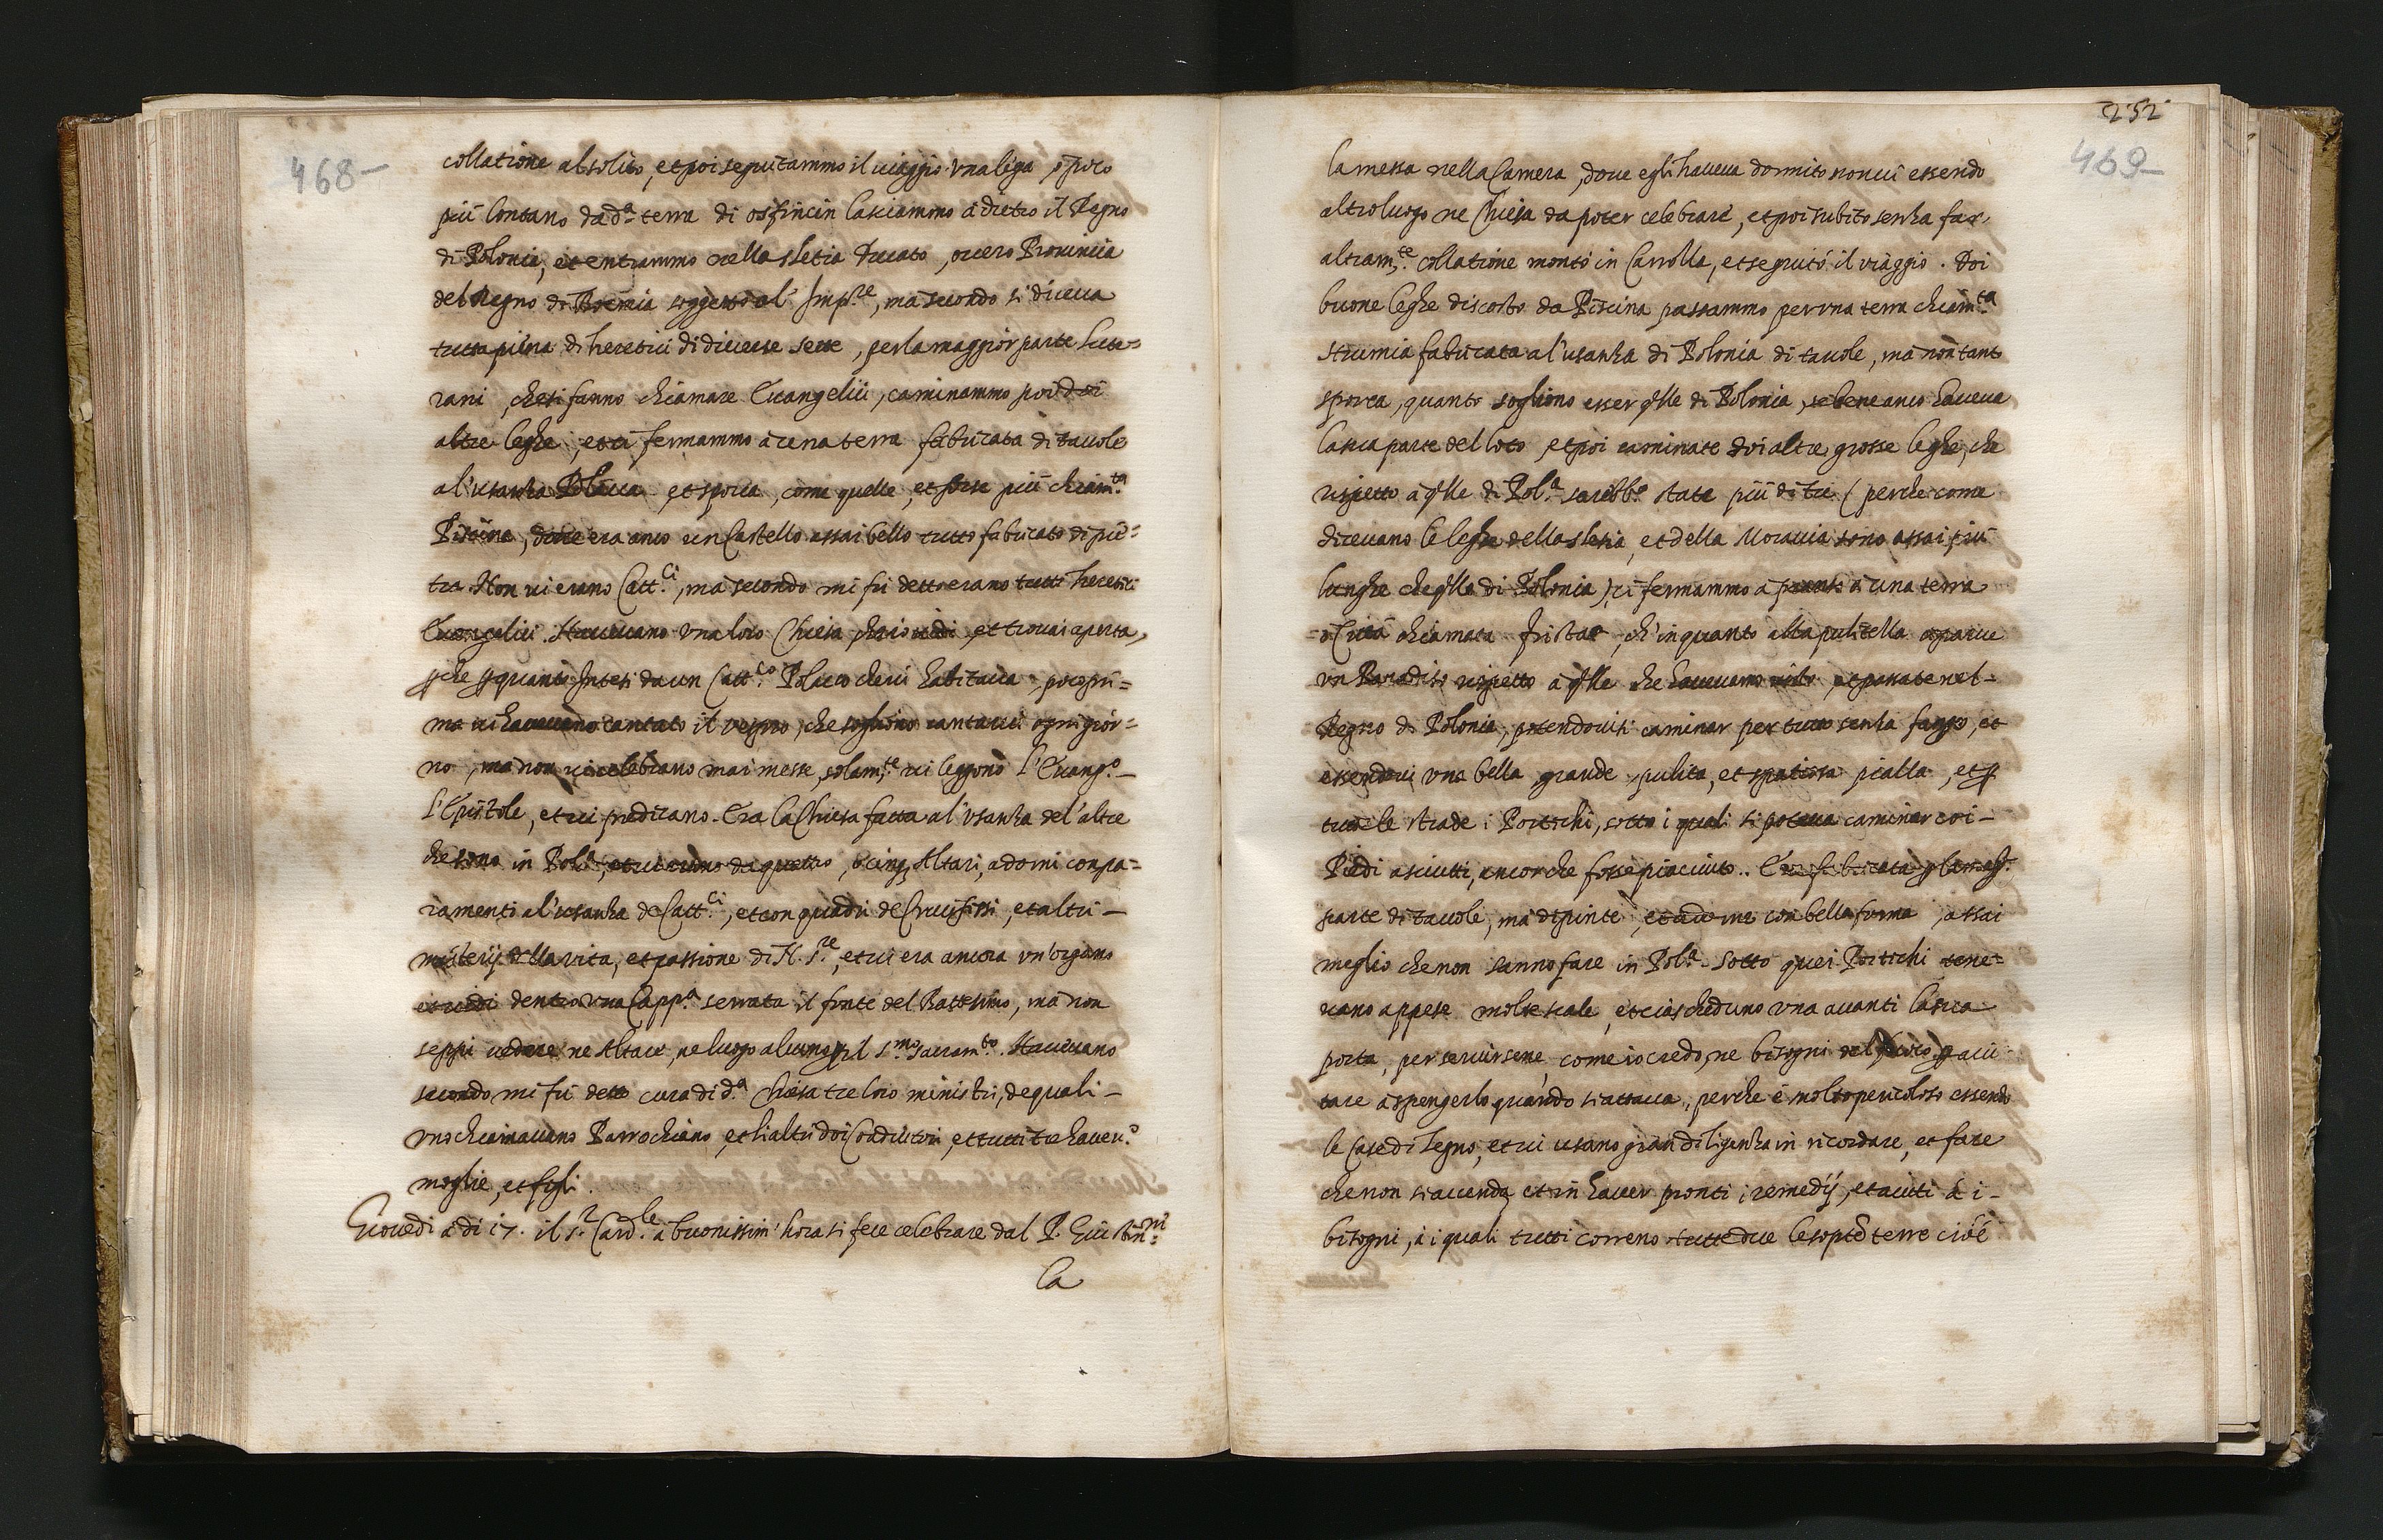 468-
collatione al solito, et poi seguitammo il viaggio. Una lega, ò poco
più lontano da d.ª terra di osfincin lasciammo à dietro il Regno
di Polonia, et entrammo nella slesia Ducato, overo Provincia
del Regno di Boemia soggetto al' Imp.re, ma secondo si diceva
tutta piena di heretici di diverse sette, per la maggior parte Lute=
rani, che si fanno chiamare Evangelici, caminammo poi doi
altre leghe, et ci fermammo à una terra fabricata di tavole
al'usanza Polacca et sporca, come quelle, et forse più chiam.ta
Piscina, dove era anco un Castello assai bello tutto fabricato di pie=
tra. Non vi erano Catt.ci, mà secondo mi fu detto erano tutti heretici
Evangelici. Havevano una loro Chiesa, ch'io vidi, et trovai aperta,
p̱che p̱ quanto intesi da un Catt.co Polacco che vi habitava poco pri=
ma vi havevano cantato il vespro, che sogliono cantarvi ogni gior=
no, mà non vi celebrano mai messe, solam.te vi leggono l'Evang.o
l'Epistole, et vi predicano. Era la Chiesa fatta al'usanza del'altre
che sono in Pol.ª, et vi erano da quattro, ò cinq; Altari, adorni con pa=
ramenti al'usanza de Catt.ci, et con quadri de Crucifissi, et altri
misterij della vita, et passione di N. S.re, et vi era ancora un'organo
et vidi dentro una Capp.ª serrata il fonte del Battesimo, mà non
seppi vedere ne Altare, ne luogo alcuno p̱ il S.mo Sacram.to. Havevano
secondo mi fù detto cura di d.ª Chiesa tre loro ministri, de quali
uno chiamavano Parrochiano, et li altri doi Coadiutori, et tutti tre haven.o
moglie, et figli.
Giovedi à di 17. il S.r Card.le à buonissim' hora si fece celebrare dal P. Giu
la
252
469-
la messa nella Camera, dove egli haveva dormito non vi essendo
altro luogo ne Chiesa da poter celebrare, et poi subito senza far
altram.te collatione montò in Carrozza, et seguitò il viaggio. Doi
buone leghe discosto da Piscina passammo per una terra chiam.ta
Strumia fabricata al'usanza di Polonia di tavole, mà non tanto
sporca, quanto sogliono esser q̃lle di Polonia, se bene anco haveva
la sua parte del loto, et poi caminate doi altre grosse leghe, che
rispetto à q̃lle di Pol.ª sarebb.o state più di tre (perche come
dicevano le leghe della slesia, et della Moravia sono assai più
lunghe che q̃lla di Polonia) ci fermammo à pranso à una terra
ò Città chiamata Fristat, ch'in quanto alla pulitezza apparve
un Paradiso rispetto à q̃lle che havevamo visto, et passate nel
Regno di Polonia, potendovisi caminar per tutto senza fango, et
essendovi una bella grande, pulita, et spatiosa piazza, et p̱
tutte le strade i Portichi, sotto i quali si poteva caminar coi
Piedi asciutti, ancorche fosse piaciuto. Era fabricata p̱ la mag.r
parte di tavole, mà depinte, et adorne con bella forma, assai
meglio che non sanno fare in Pol.ª Sotto quei Portichi tene=
vano appese molte scale, et ciascheduno una avanti la sua
porta, per servirsene, come io credo, ne bisogni del fuoco p̱ aiu
tare à spengerlo quando si attacca, perche è molto pericoloso essendo
le Case di legno, et vi usano gran diligenza in ricordare, et fare
che non si accenda et in haver pronti i remedij, et aiuti à i
bisogni, à i quali tutti correno tutte due le sop.te terre cioè